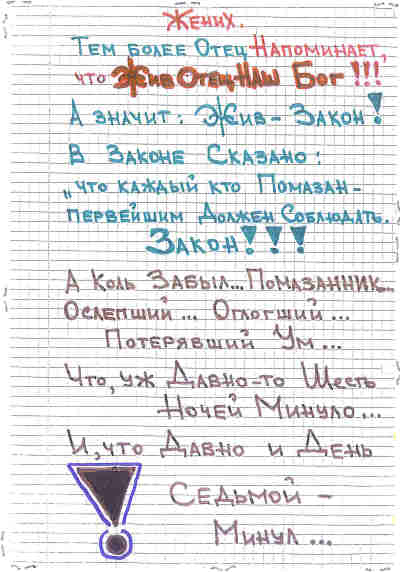 Жених.
Тем более Отец Напоминает,
что Жив Отец-Наш Бог!!!
А значит: Жив - Закон!
В Законе Сказано:
„что каждый кто Помазан -
первейшим Должен Соблюдать.
Закон!!!
А Коль Забыл... Помазанник...
Ослепший... Оглогший...
Потерявший Ум...
Что, уж Давно-то Шесть
Ночей Минуло...
И, что Давно и День
Седьмой -
Минул...